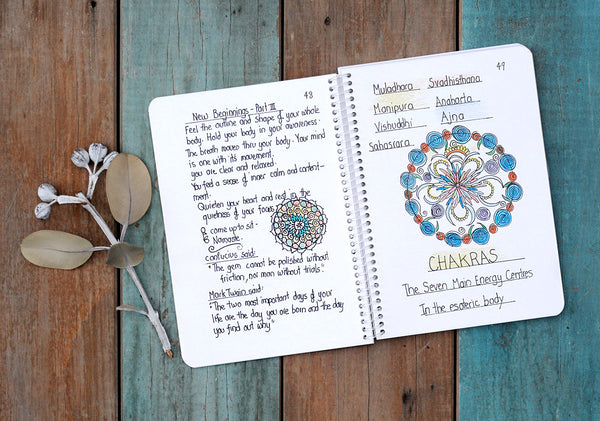 48
New Beginnings - Part III
Feel the outline and shape of your whole
body. Hold your body in your awareness.
The breath moves thru your body. Your mind
is one with its movement.
You are clear and relaxed.
You feel a sense of inner calm and content-
ment.
Quieten your heart and rest in the
quietness of your focus
& come up to sit.
Namaste.
Confucius said:
"The gem cannot be polished without
friction, nor man without trials".
Mark Twain said:
"The two most important days of your
life are the day you are born and the day
you find out why"
49
Muladhara Svadhisthana
Manipura Anaharta
Vishuddhi Ajna
Sahasrara
CHAKRAS
The Seven Main Energy Centres
In the esoteric body